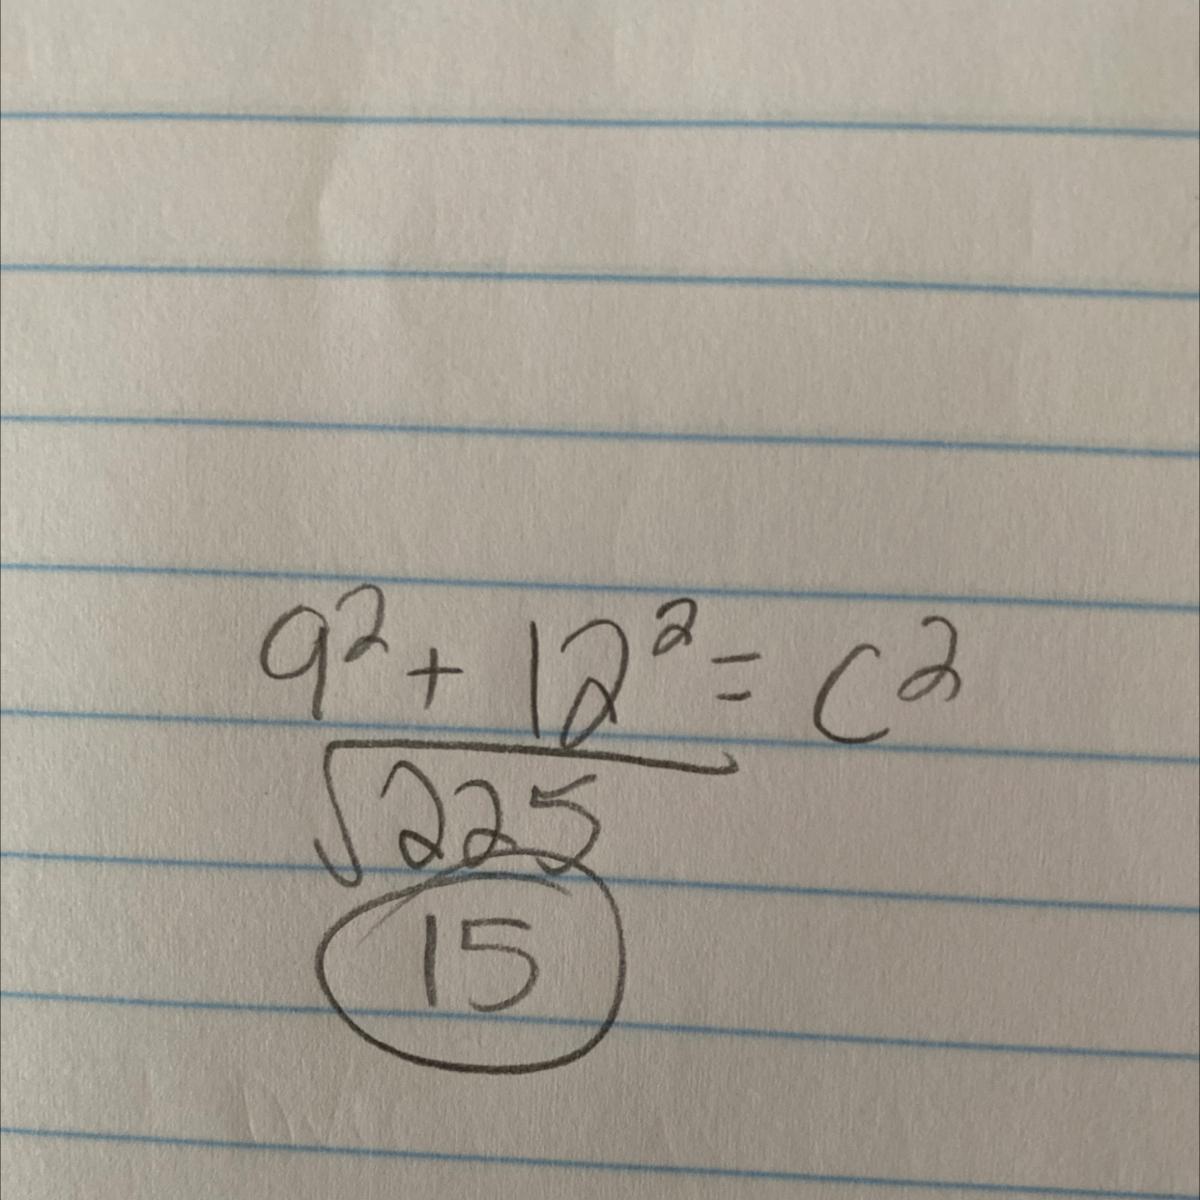 9² + 12² = c²
√225
15